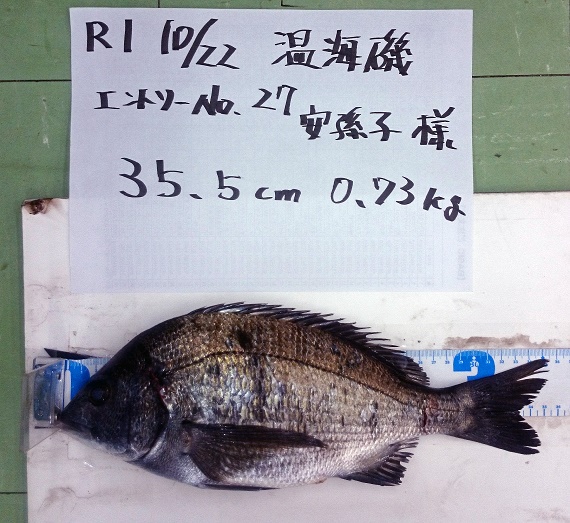 R1 10/22 温海磯
エントリーNo.27
安孫子 様
35.5cm 0.73kg